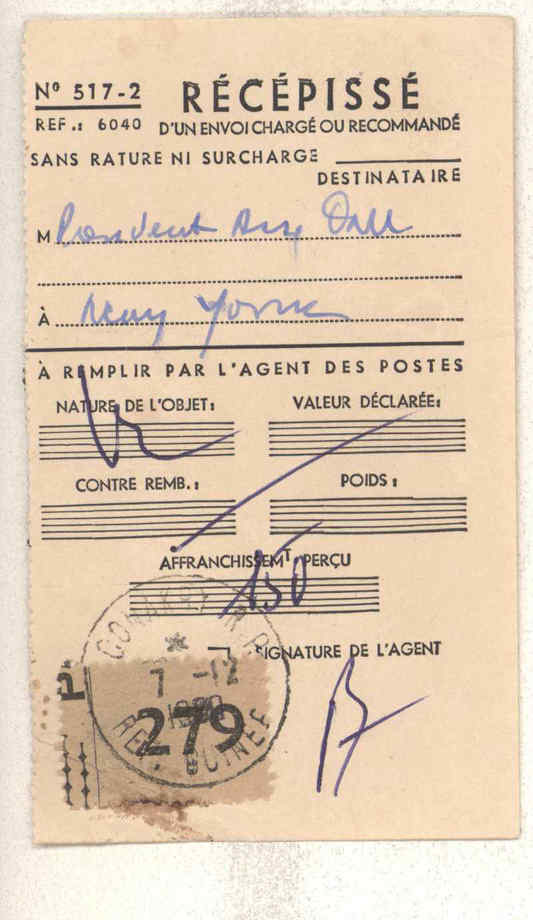 Nº 517-2
RÉCÉPISSÉ
REF.: 6040
D'UN ENVOI CHARGÉ OU RECOMMANDÉ
SANS RATURE NI SURCHARGE
DESTINATAIRE
M President
À New York
À REMPLIR PAR L'AGENT DES POSTES
NATURE DE L'OBJET:
VALEUR DÉCLARÉE:
CONTRE REMB.:
POIDS:
AFFRANCHISSEMT PERÇU
150
CONAKRY R.P.
SIGNATURE DE L'AGENT
7 -12
279
REP. GUINEE